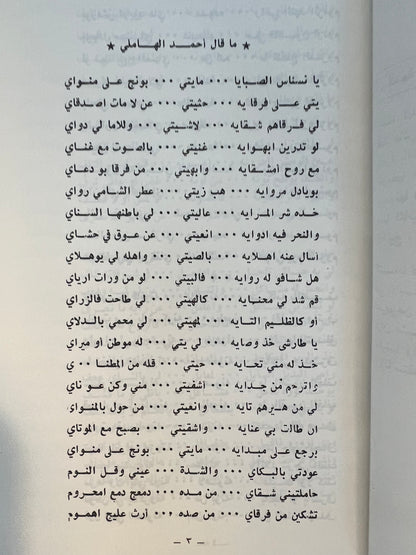 ★ ما قال أحمد الهاملي ★
يا نسناس الصبايا ٠٠٠ مايتي ٠٠٠ بونج على منواي
يتي على فرقا يه ٠٠٠ حثيتي ٠٠٠ عن لا مات اصدقاي
لي فرقاهم شقايه ٠٠٠ لاشيتي ٠٠٠ وللاما لي دواي
لو تدرين ابهوايه ٠٠٠ غنيتي ٠٠٠ بالصوت مع غناي
مع روح أمشقايه ٠٠٠ وابهيتي ٠٠٠ من فرقا بو دعاي
بويادل مروايه ٠٠٠ هب زيتي ٠٠٠ عطر الشامي رواي
خده شر المرايه ٠٠٠ عاليتي ٠٠٠ لي باطنها السناي
والنحر فيه ادوايه ٠٠٠ انعيتي ٠٠٠ عن عوق في حشاي
أسال عنه اهلايه ٠٠٠ بالصيتي ٠٠٠ واهله لي يوهلاي
هل شافو له روايه ٠٠٠ فالبيتي ٠٠٠ لو من ورات ارياي
قم شد لي معنايه ٠٠٠ كالهيتي ٠٠٠ لي طاحت فالزراي
أو كالظليم التايه ٠٠٠ لمهيتي ٠٠٠ لي معمي بالدلاي
يا طارشي خذ وصايه ٠٠٠ لي يتي ٠٠٠ له موطن أو مبراي
خذ له مني تحايه ٠٠٠ حيتي ٠٠٠ قله من المطنا ٠٠ ي
واترحم من جدايه ٠٠٠ أشفيتي ٠٠٠ مني وكن عو ناي
لي من هبرهم تايه ٠٠٠ وانعيتي ٠٠٠ من حول بالمنواي
ان طالت بي عنايه ٠٠٠ واشقيتي ٠٠٠ بصبح مع الموتاي
برجع على مبدايه ٠٠٠ مايتي ٠٠٠ بونج على منواي
عودتي بالبكاي ٠٠٠ والشدة ٠٠٠ عيني وقل النوم
حاملتيني شقاي ٠٠٠ من مده ٠٠٠ دمعج دمع امحروم
تشكين من فرقاي ٠٠٠ من صده ٠٠٠ أرث عليج اهموم
— ٣ —